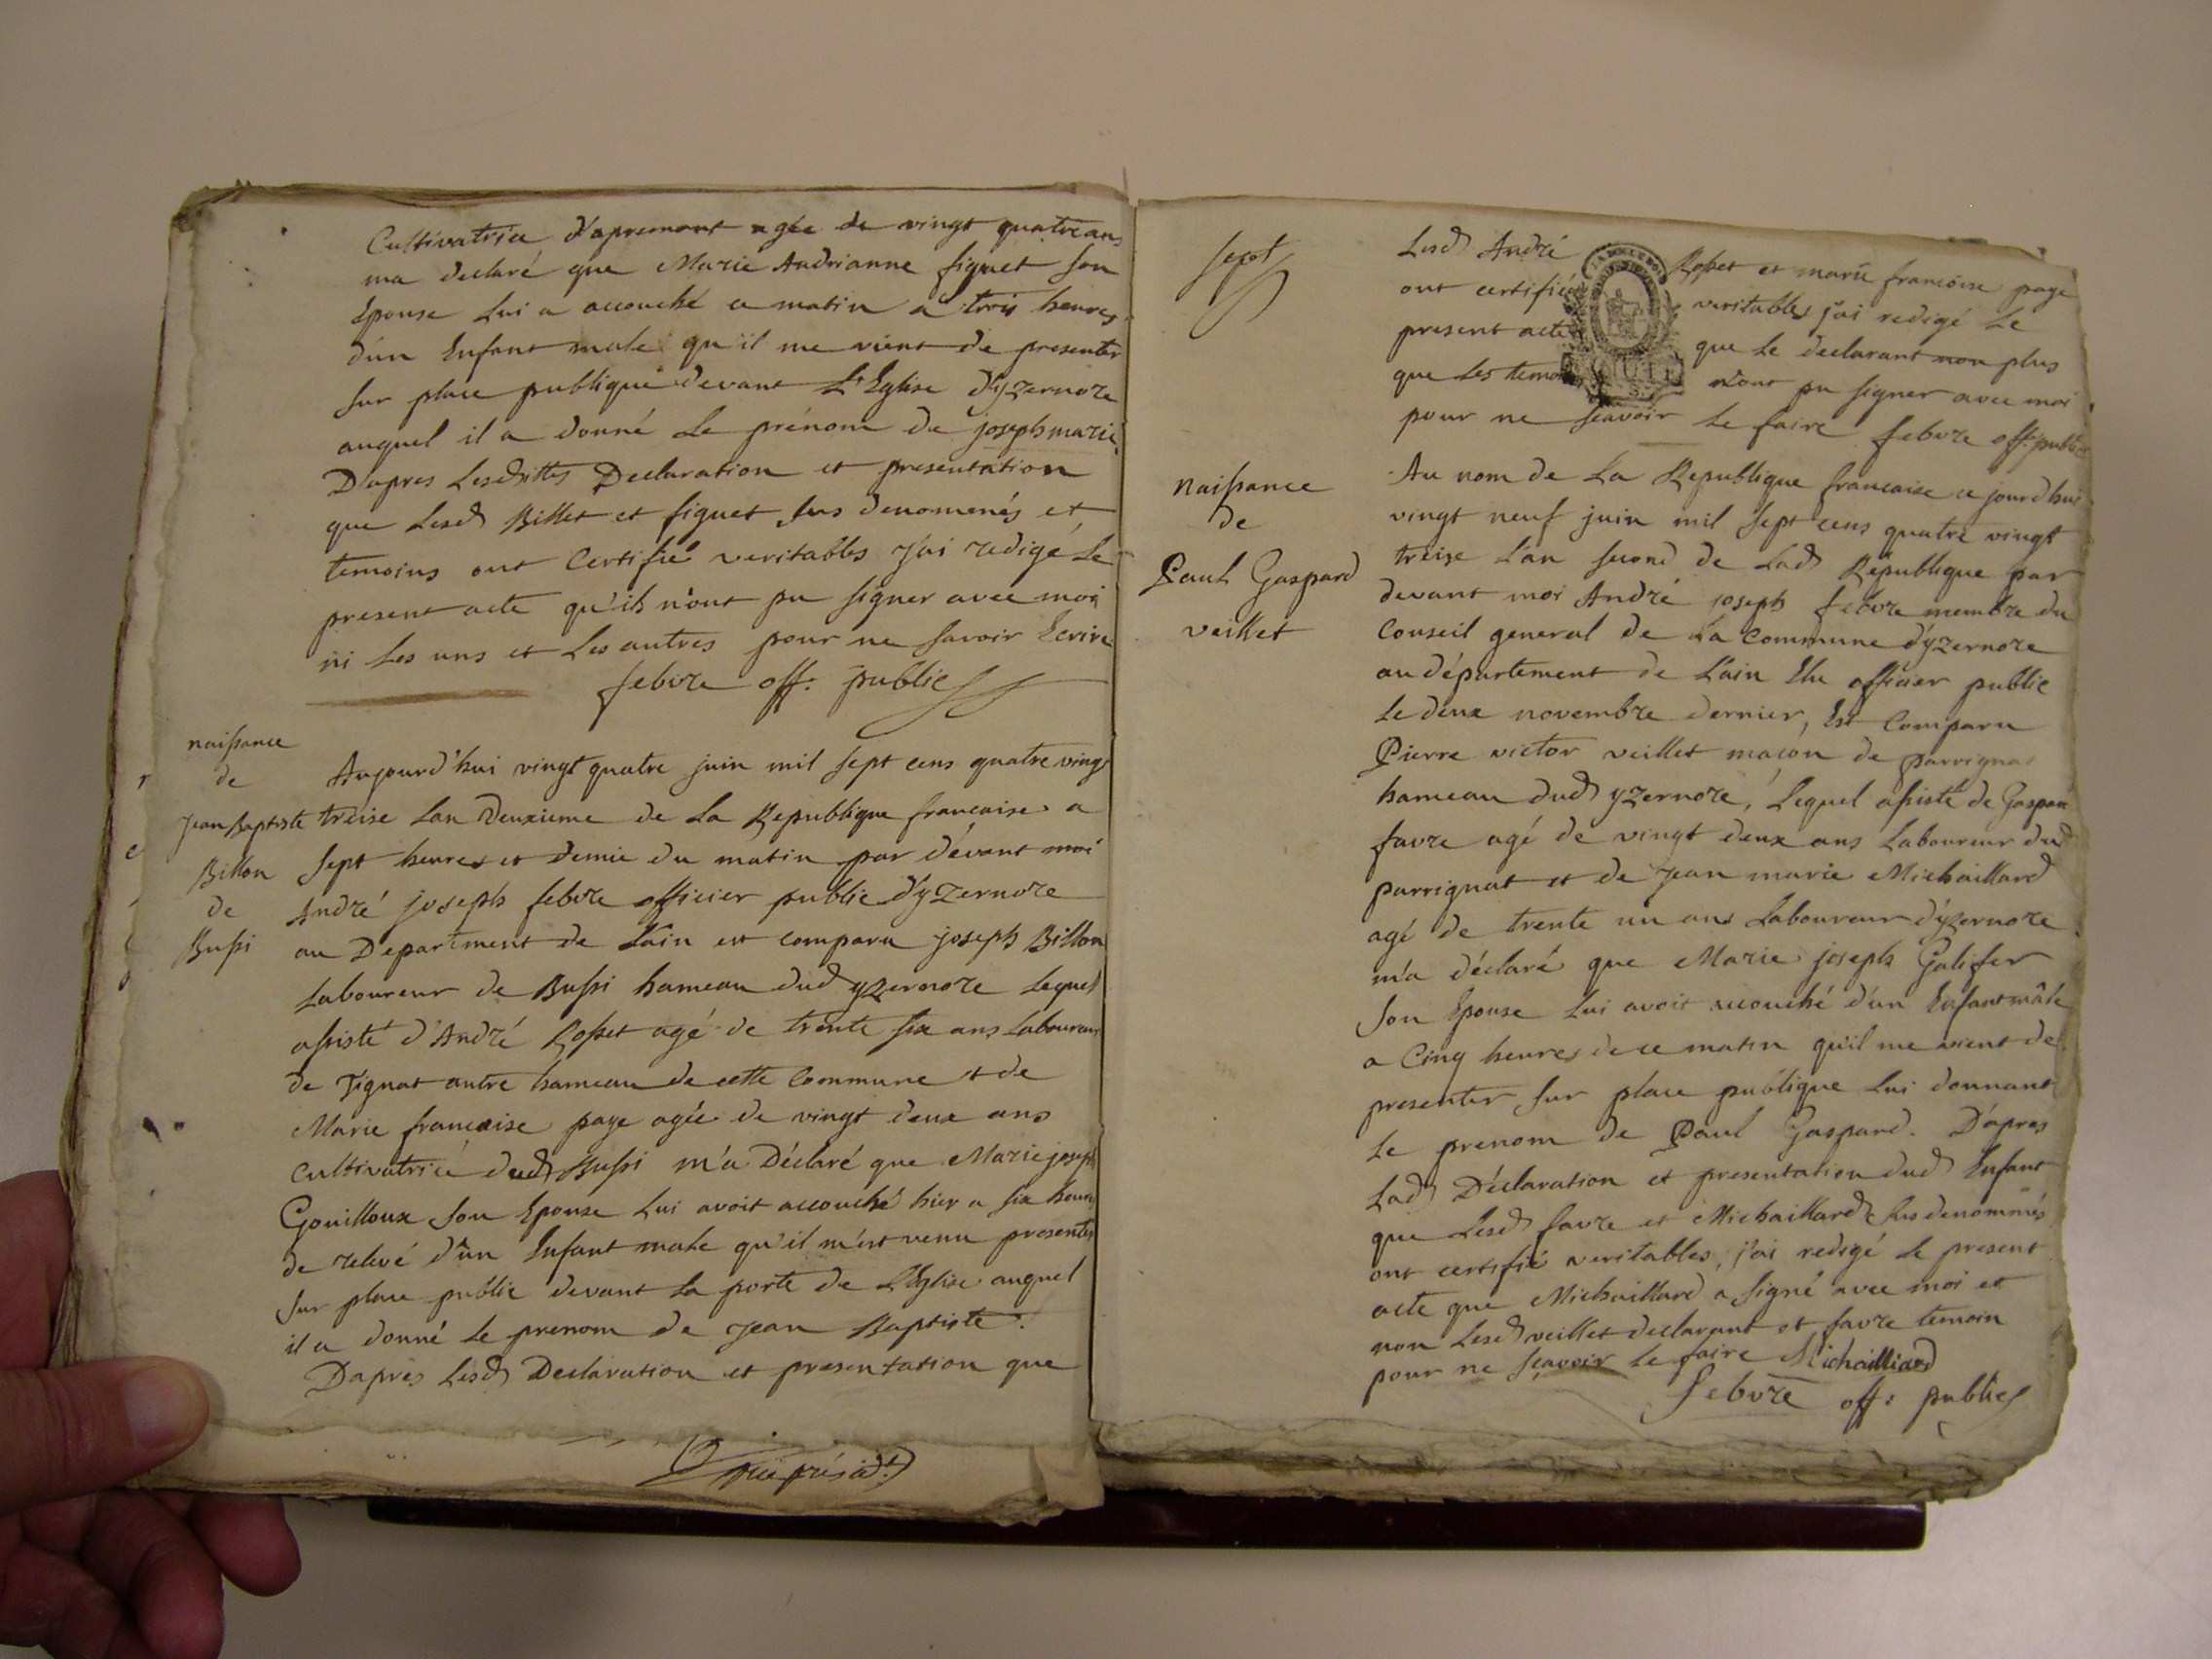 Cultivatrice d'apremont agée de vingt quatre ans
ma declaré que Marie Andrianne figuet son
Epouse Lui a accouché ce matin a trois heures
d'un Enfant male qu'il me vient de presenter
sur place publique devant L'Eglise d'yzernore
auquel il a donné Le prénom de joseph marie
D'apres Lesdittes Declaration et presentation
que Lesd Billet et figuet sus denomenés et
temoins ont Certifié veritables j'ai redigé Le
present acte qu'ils n'ont pu signer avec moi
ni Les uns et Les autres pour ne savoir Ecrire
febvre off: public
naissance
de
Jean Baptiste
Billon
de
Bussi
Aujourd'hui vingt quatre juin mil sept cens quatre vingt
treise Lan Deuxieme de La Republique francaise a
sept heures et demie du matin par dévant moi
André joseph febvre officier public d'yzernore
au Departement de L'ain est comparu joseph Billon
Laboureur de Bussi hameau dud yzernore Lequel
assisté d'André Rosset agé de trente six ans Laboureur
de Tignat autre hameau de cette Commune et de
Marie francaise page agée de vingt deux ans
Cultivatrice dud Bussi m'a Déclaré que Marie joseph
Gouilloux son Epouse Lui avoit accouché hier a six heures
de relevé d'un Enfant male qu'il m'est venu presenter
sur place public devant La porte de L'Eglise auquel
il a donné Le prenom de Jean Baptiste.
D'apres Lesd Declaration et presentation que
Lesd André Rosset et marie francoise page
ont certifié veritables j'ai redigé Le
present acte que Le declarant non plus
que Les temoins n'ont pu signer avec moi
pour ne sçavoir Le faire febvre off: public
naissance
de
Paul Gaspard
veillet
Au nom de La Republique francaise ce jourd'hui
vingt neuf juin mil sept cens quatre vingt
treise L'an second de Lad Republique par
devant moi André joseph febvre membre du
Conseil general de La Commune d'yzernore
au département de L'ain Elu officier public
Le deux novembre dernier, Est Comparu
Pierre victor veillet maçon de parrignat
hameau dud yzernore, Lequel assisté de Gaspard
favre agé de vingt deux ans Laboureur dud
parrignat et de Jean marie Michaillard
agé de trente un ans Laboureur d'yzernore
m'a déclaré que Marie joseph Galifer
son Epouse Lui avoit accouché d'un Enfant mâle
a Cinq heures de ce matin qu'il me vient de
presenter sur place publique Lui donnant
Le prenom de Paul Gaspard. D'apres
Lad Déclaration et presentation dud Enfant
que Lesd favre et Michaillard sus denommés
ont certifié veritables, j'ai redigé Le present
acte que Michaillard a signé avec moi et
non Lesd veillet declarant et favre temoin
pour ne sçavoir Le faire Michailliard
febvre off: public